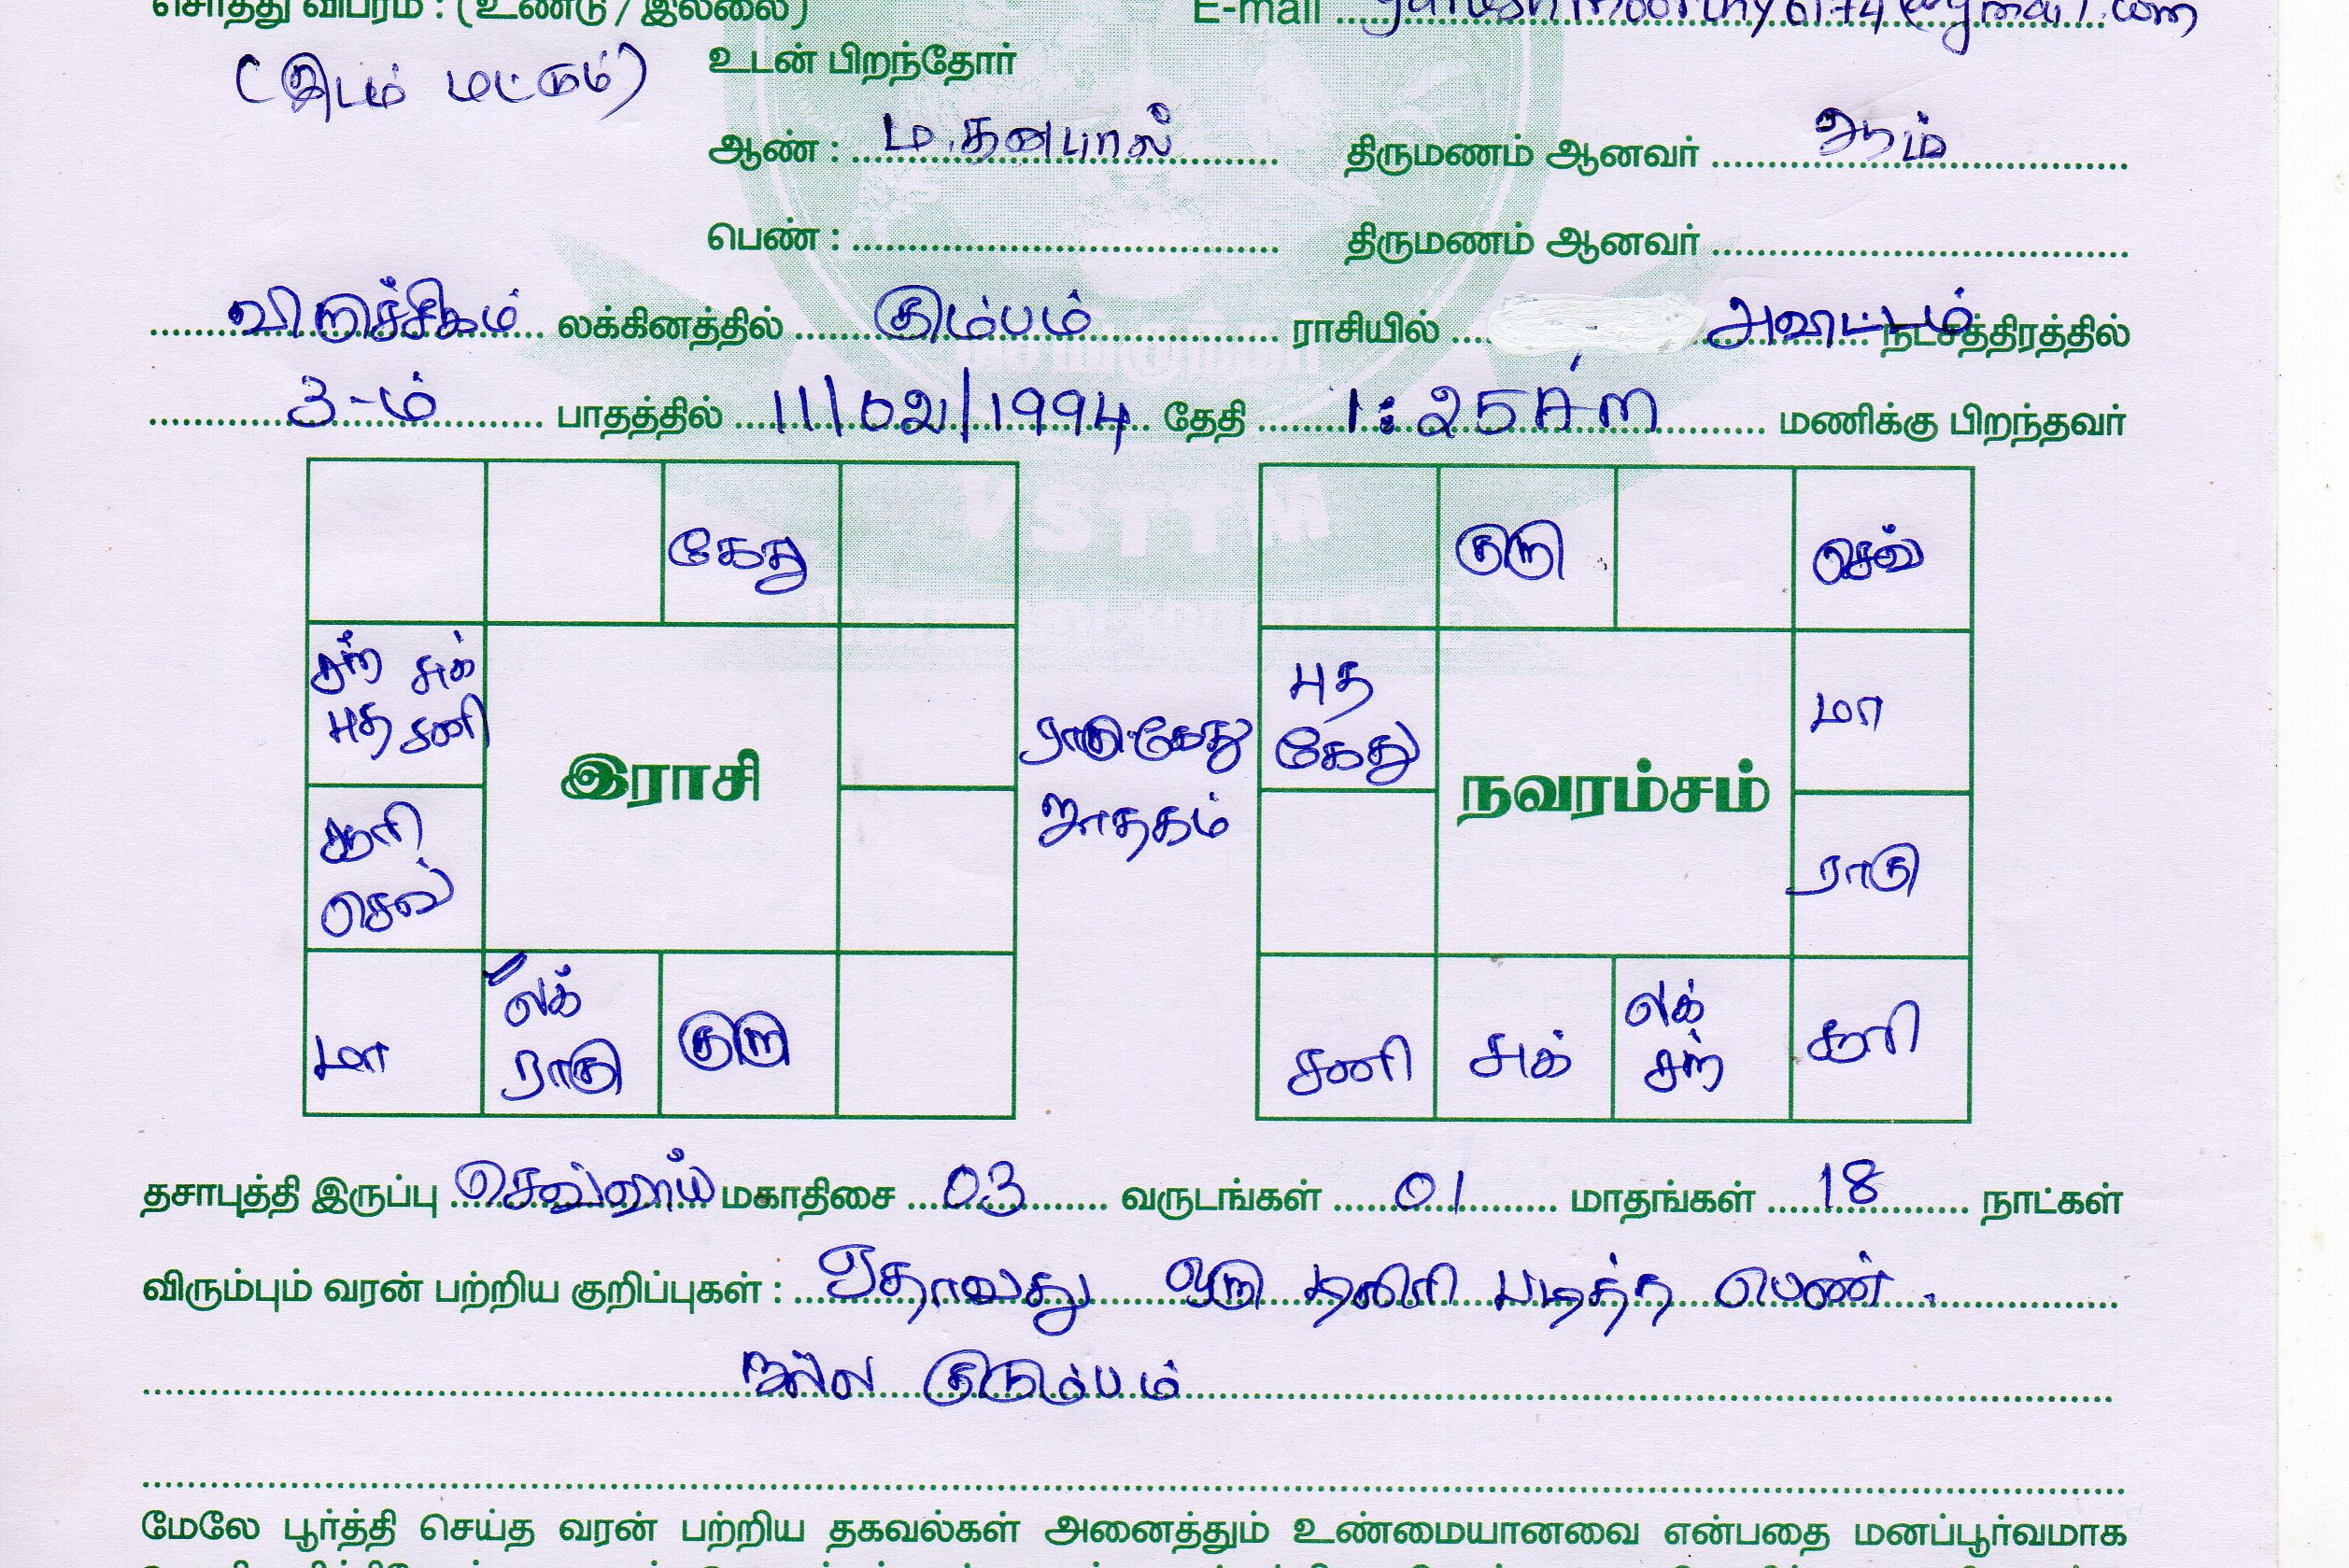 சொத்து விபரம் : (உண்டு / இல்லை) E-mail
(இடம் மட்டும்) உடன் பிறந்தோர்
ஆண் : ம.தனபால் திருமணம் ஆனவர் ஆம்
பெண் : திருமணம் ஆனவர்
விருச்சிகம் லக்கினத்தில் கும்பம் ராசியில் அவிட்டம் நட்சத்திரத்தில்
3-ம் பாதத்தில் 11/02/1994 தேதி 1:25 A.m மணிக்கு பிறந்தவர்
கேது குரு செவ்
சந் சுக்
புத சனி
இராசி
சூரி
செவ்
மா
லக்
ராகு
குரு
ராகு-கேது
ஜாதகம்
புத
கேது
நவரம்சம்
மா
ராகு
சனி
சுக்
லக்
சந்
சூரி
தசாபுத்தி இருப்பு செவ்வாய் மகாதிசை 03 வருடங்கள் 01 மாதங்கள் 18 நாட்கள்
விரும்பும் வரன் பற்றிய குறிப்புகள் : ஏதாவது ஒரு டிகிரி படித்த பெண்.
நல்ல குடும்பம்
மேலே பூர்த்தி செய்த வரன் பற்றிய தகவல்கள் அனைத்தும் உண்மையானவை என்பதை மனப்பூர்வமாக